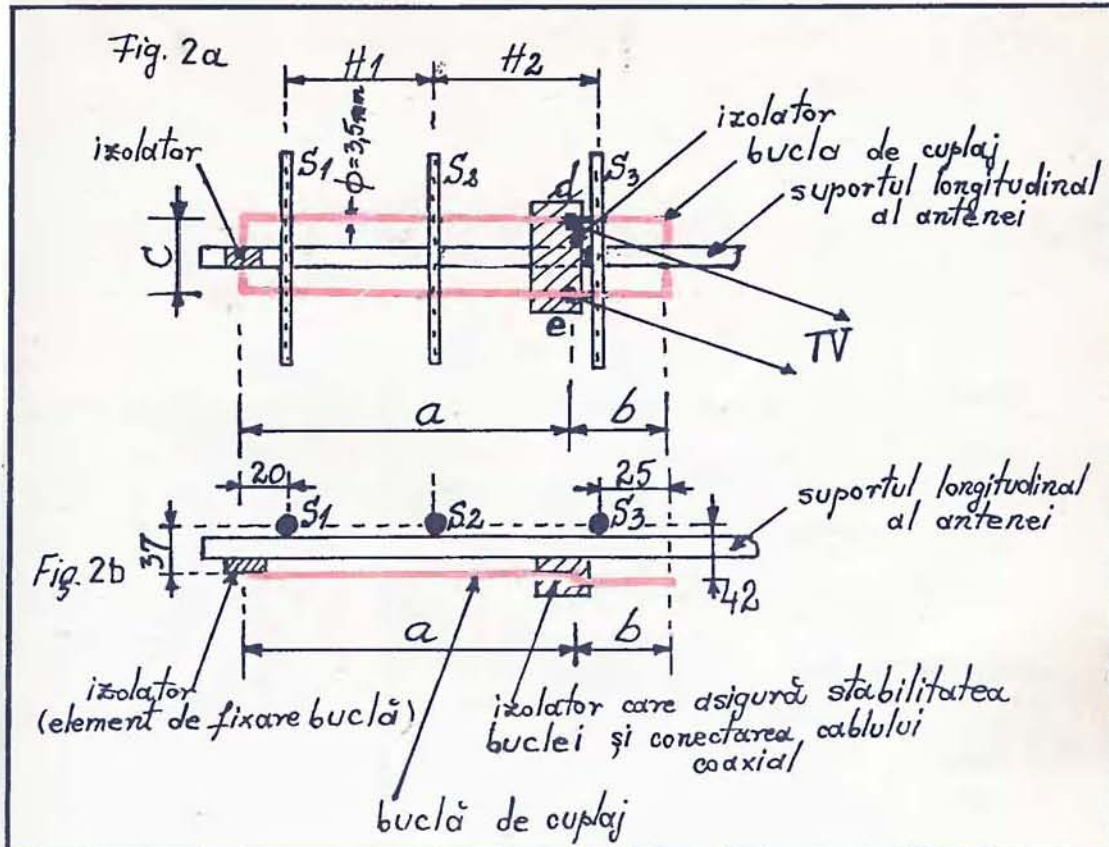 Fig. 2a
H1
H2
izolator
S1
ϕ=3,5mm
S2
d
S3
izolator
bucla de cuplaj
suportul longitudinal
al antenei
C
e
TV
a
b
20
25
S1
S2
S3
suportul longitudinal
al antenei
37
Fig. 2b
42
a
b
izolator
(element de fixare buclă)
izolator care asigură stabilitatea
buclei și conectarea cablului
coaxial
buclă de cuplaj